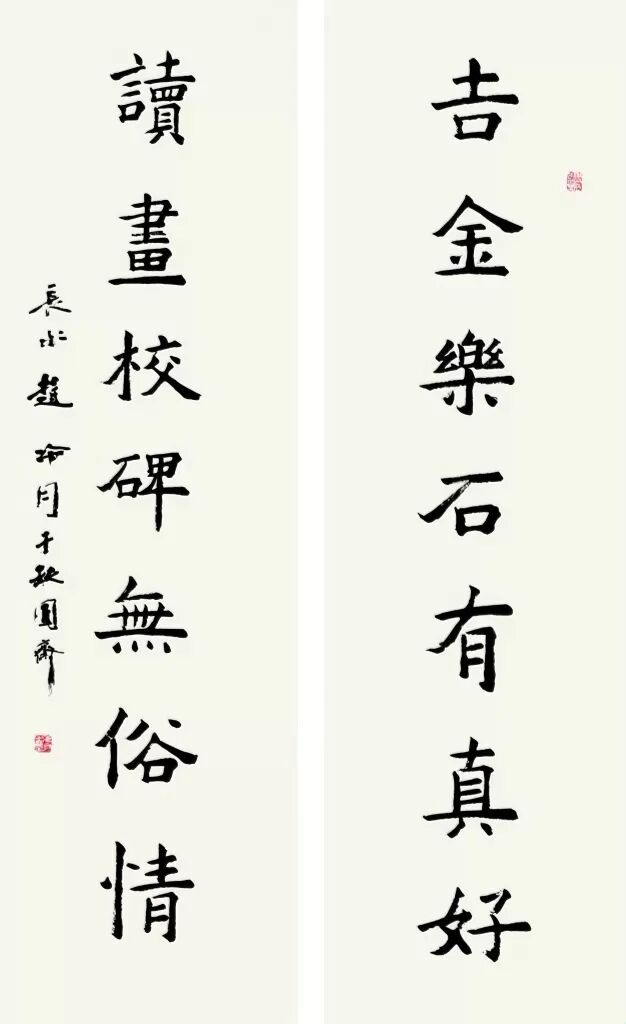 吉金樂石有真好
讀畫校碑無俗情
趙 月于秋圓齋